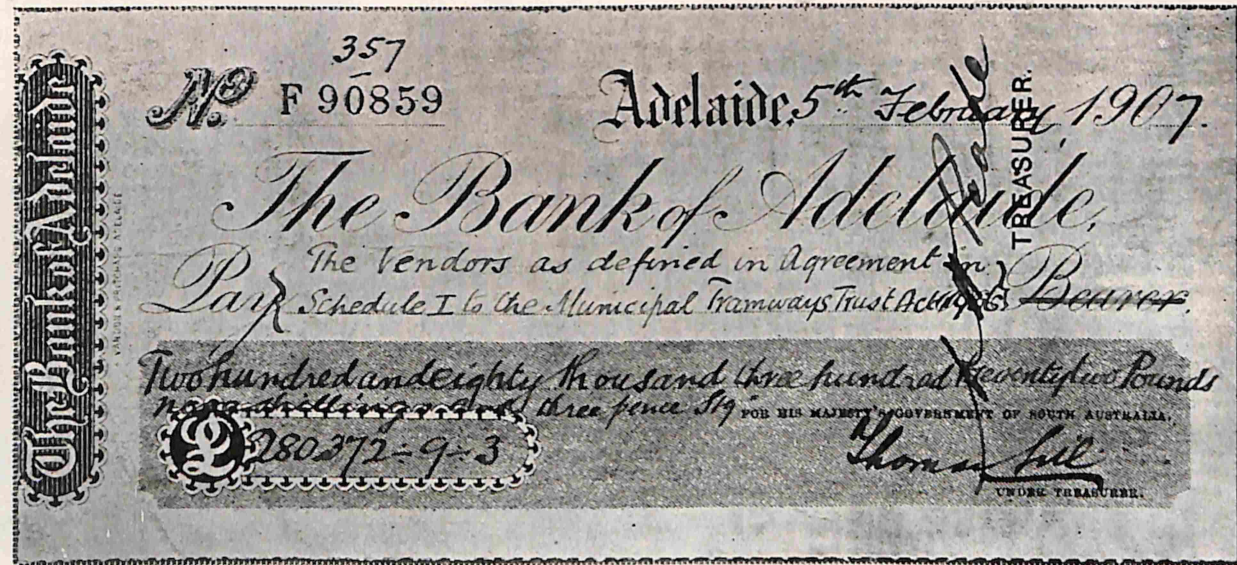 The Bank of Adelaide
357
No. F 90859
Adelaide, 5th February 1907.
The Bank of Adelaide,
Pay The Vendors as defined in Agreement in
Schedule I to the Municipal Tramways Trust Act Bearer.
Two hundred and eighty thousand three hundred & seventy two Pounds
nine shillings and three pence Stg
FOR HIS MAJESTY'S GOVERNMENT OF SOUTH AUSTRALIA.
£ 280372-9-3
Thomas Gill
UNDER TREASURER.
TREASURER.